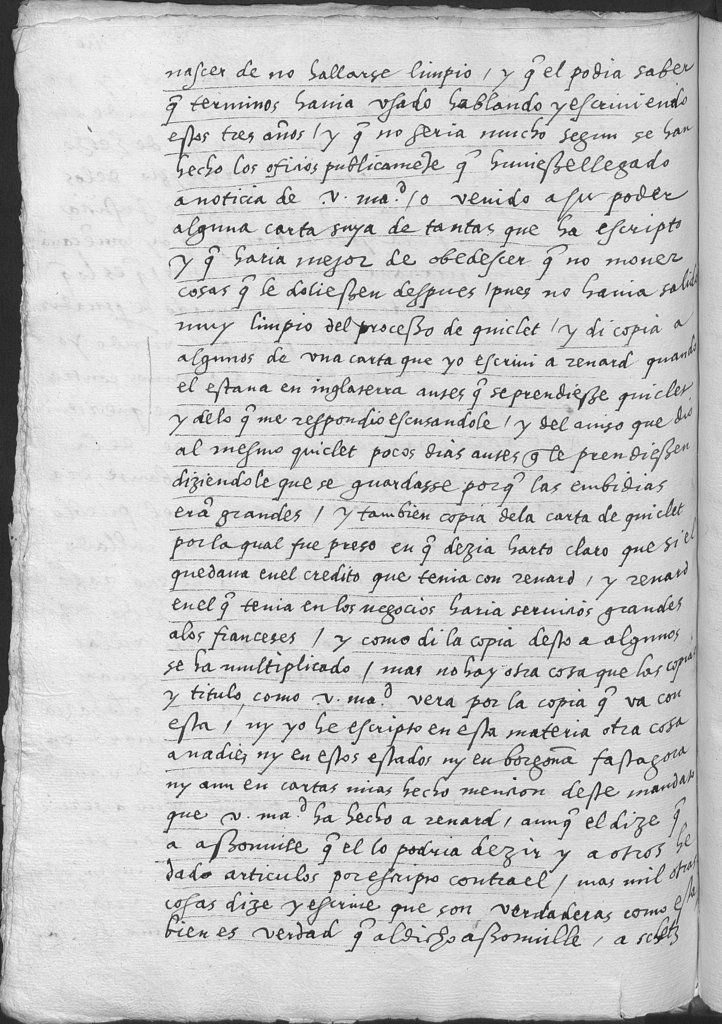 nascer de no hallarse limpio / y q̃ el podia saber
q̃ terminos hauia vsado hablando y escriuiendo
estos tres años / y q̃ no seria mucho segun se han
hecho los oficios publicamẽte q̃ huuiesse llegado
a noticia de v. ma.d / o venido a su poder
alguna carta suya de tantas que ha escripto
y q̃ haria mejor de obedescer q̃ no mouer
cosas q̃ le doliessen despues / pues no hauia salido
muy limpio del processo de quiclet / y di copia a
algunos de vna carta que yo escriui a renard quando
el estaua en inglaterra antes q̃ se prendiesse quiclet
y de lo q̃ me respondio escusandole / y del auiso que dio
al mesmo quiclet pocos dias antes q̃ le prendiessen
diziendole que se guardasse porq̃ las embidias
erã grandes / y tambien copia dela carta de quiclet
por la qual fue preso en q̃ dezia harto claro que si el
quedaua enel credito que tenia con renard / y renard
enel q̃ tenia en los negocios haria seruicios grandes
alos franceses / y como di la copia desto a algunos
se ha multiplicado / mas no hay otra cosa que las copias
y titulo, como v. ma.d vera por la copia q̃ va con
esta / ny yo he escripto en esta materia otra cosa
a nadie ny en estos estados ny en borgoña fastagora
ny aun en cartas mias hecho mencion deste mandato
que v. ma.d ha hecho a renard / aunq̃ el dize q̃
a assonuile q̃ el lo podria dezir y a otros he
dado articulos por escripto contra el / mas mil otras
cosas dize y escriue que son verdaderas como esta
bien es verdad q̃ al dicho assonuille / a